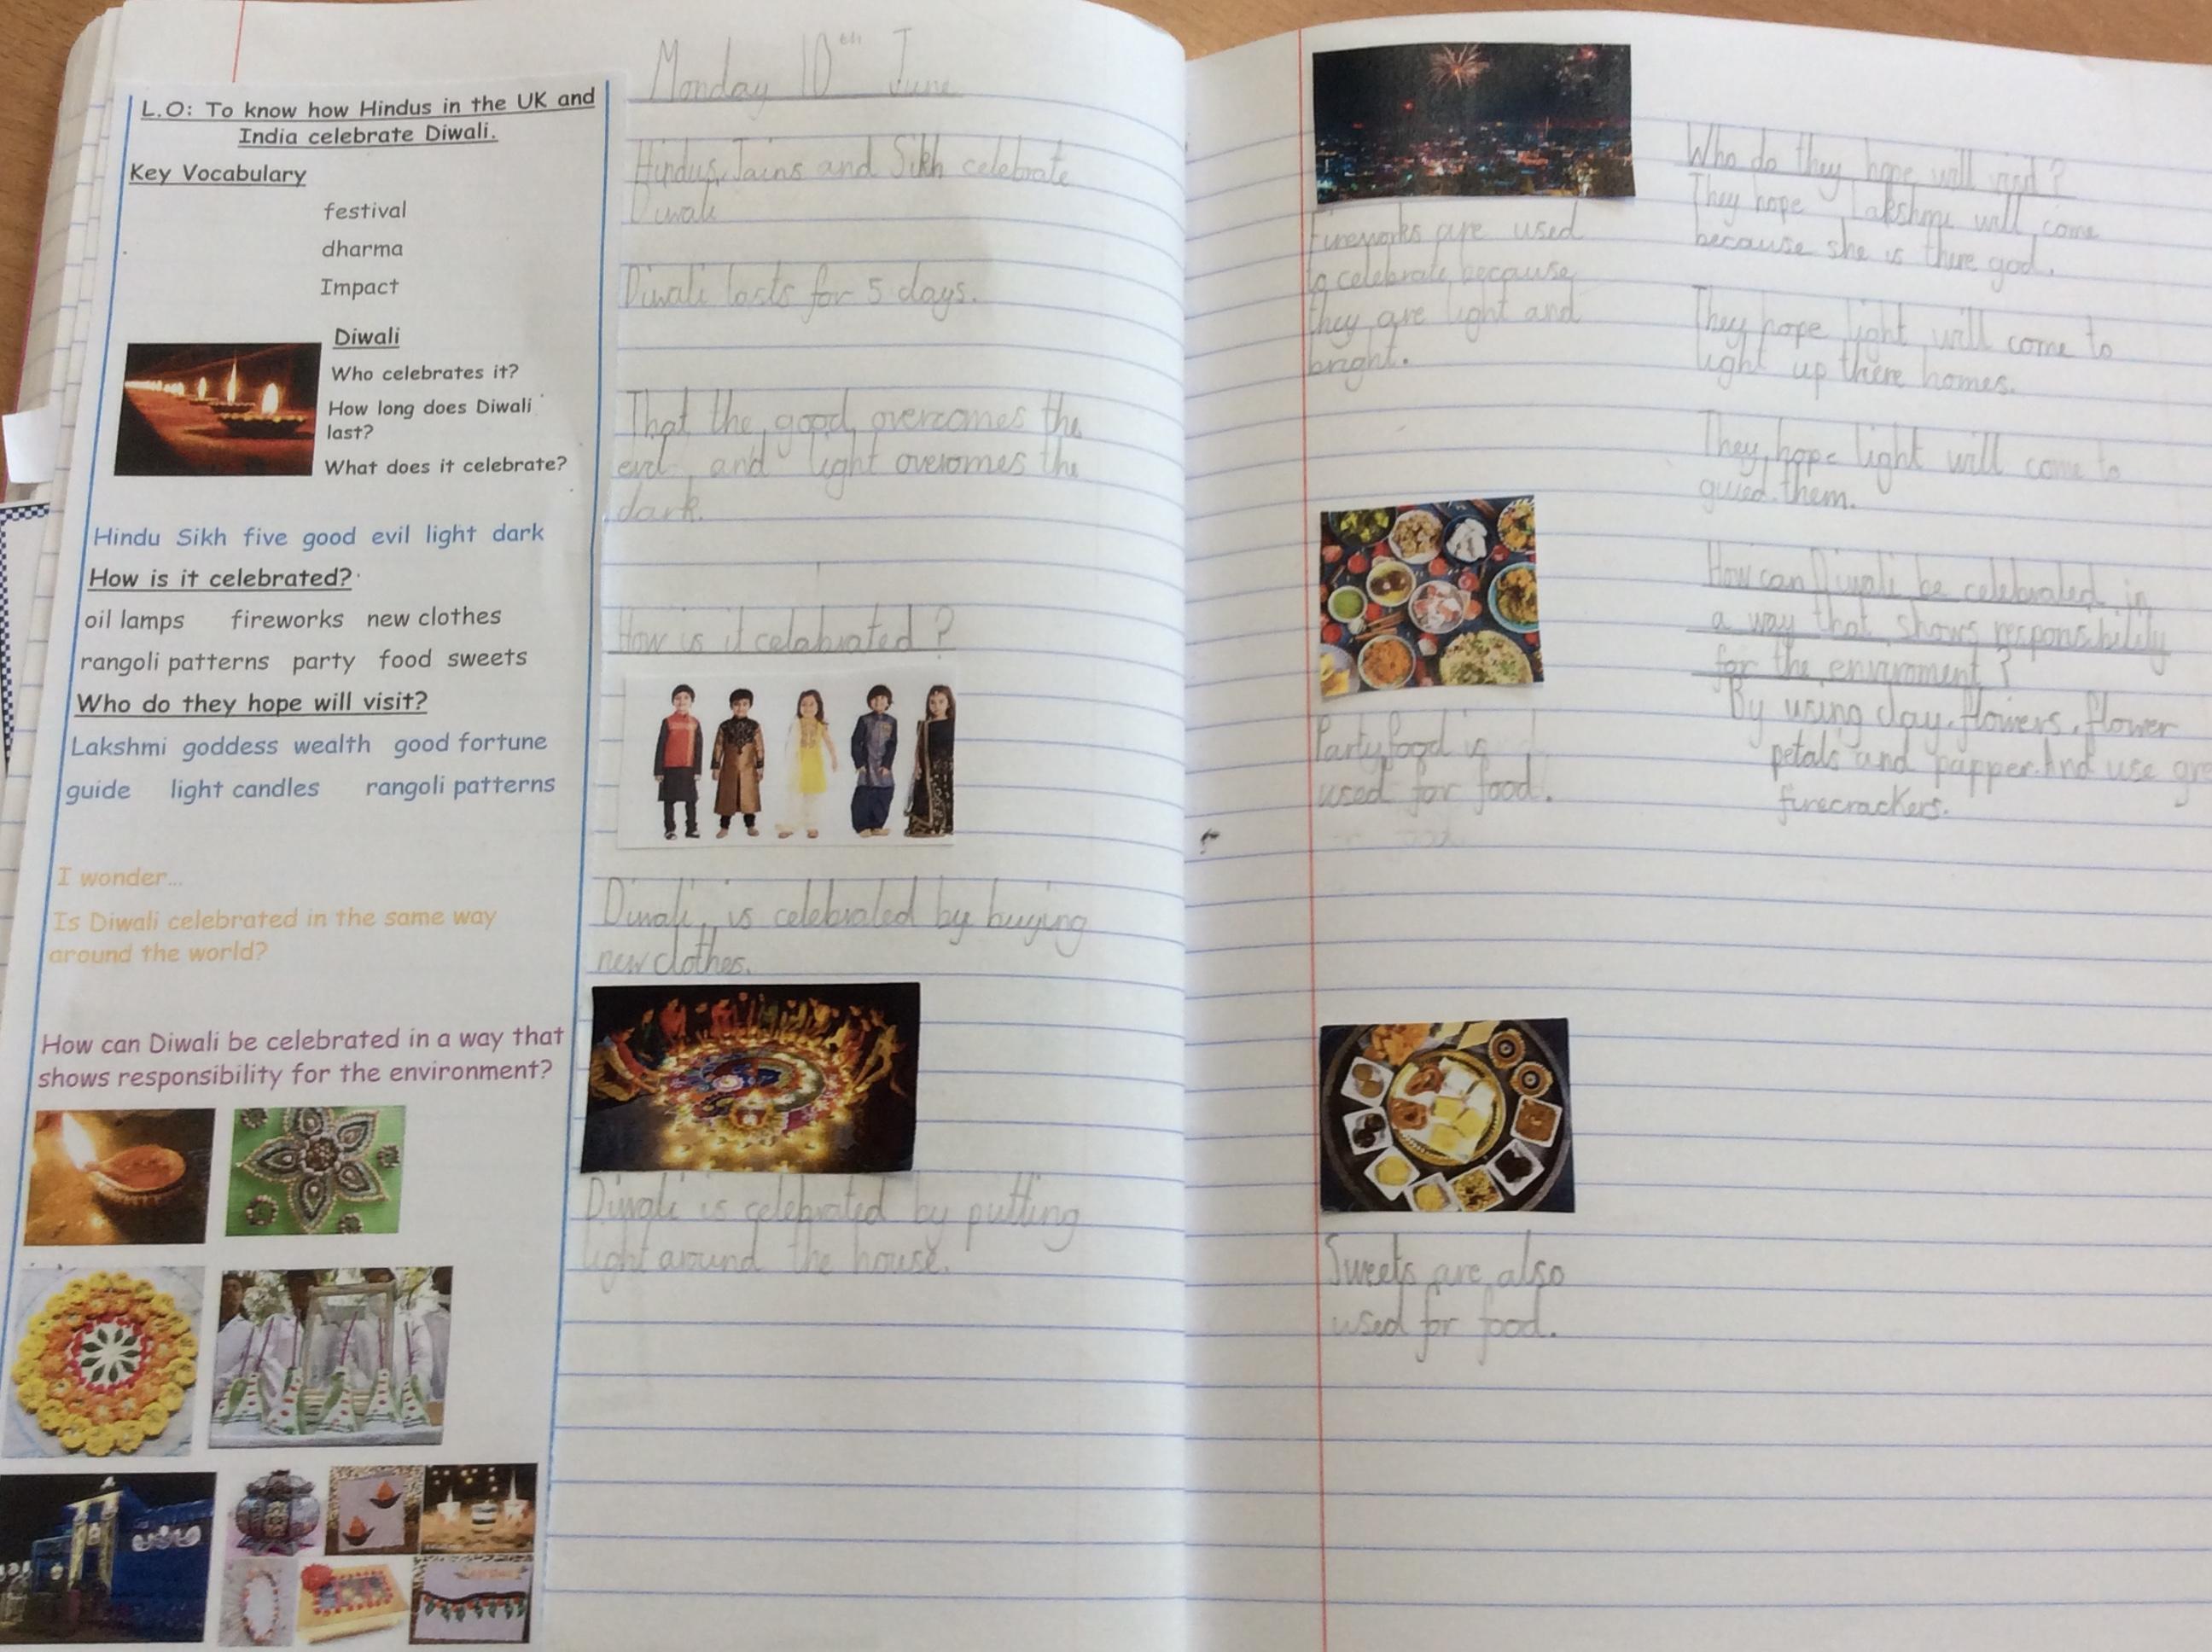 L.O: To know how Hindus in the UK and
India celebrate Diwali.
Key Vocabulary
festival
dharma
Impact
Diwali
Who celebrates it?
How long does Diwali
last?
What does it celebrate?
Hindu Sikh five good evil light dark
How is it celebrated?
oil lamps fireworks new clothes
rangoli patterns party food sweets
Who do they hope will visit?
Lakshmi goddess wealth good fortune
guide light candles rangoli patterns
I wonder...
Is Diwali celebrated in the same way
around the world?
How can Diwali be celebrated in a way that
shows responsibility for the environment?
Monday 10th June
Hindus, Jains and Sikh celebrate
Diwali
Diwali lasts for 5 days.
That the good overcomes the
evil and light overomes the
dark.
How is it celabrated?
Diwali is celebrated by buying
new clothes.
Diwali is celebrated by putting
light around the house.
Fireworks are used
to celebrate because
they are light and
bright.
Party food is
used for food.
Sweets are also
used for food.
Who do they hope will visit?
They hope Lakshmi will come
because she is there god.
They hope light will come to
light up there homes.
They hope light will come to
guied them.
How can Diwali be celebrated in
a way that shows responsibility
for the envirnment?
By using clay, flowers, flower
petals and papper. And use
firecrackers.